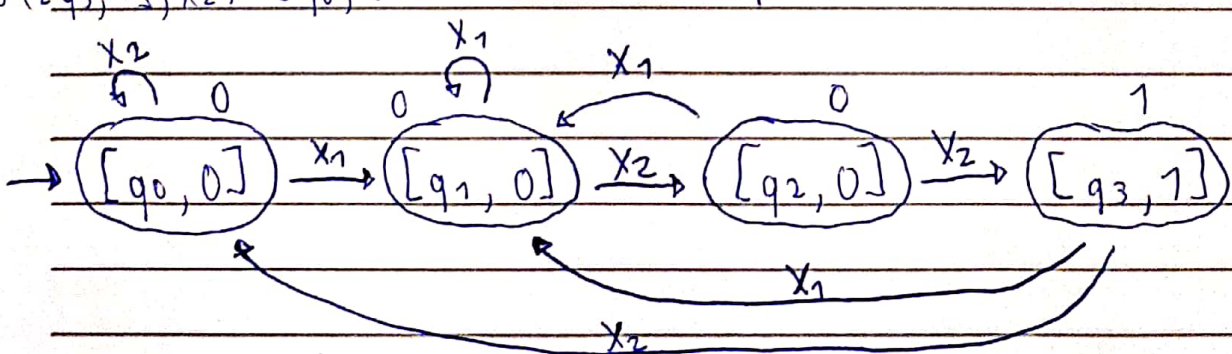 x2 x1 x1
0 0 0 1
[q0, 0] x1 [q1, 0] x2 [q2, 0] x2 [q3, 1]
x1
x2